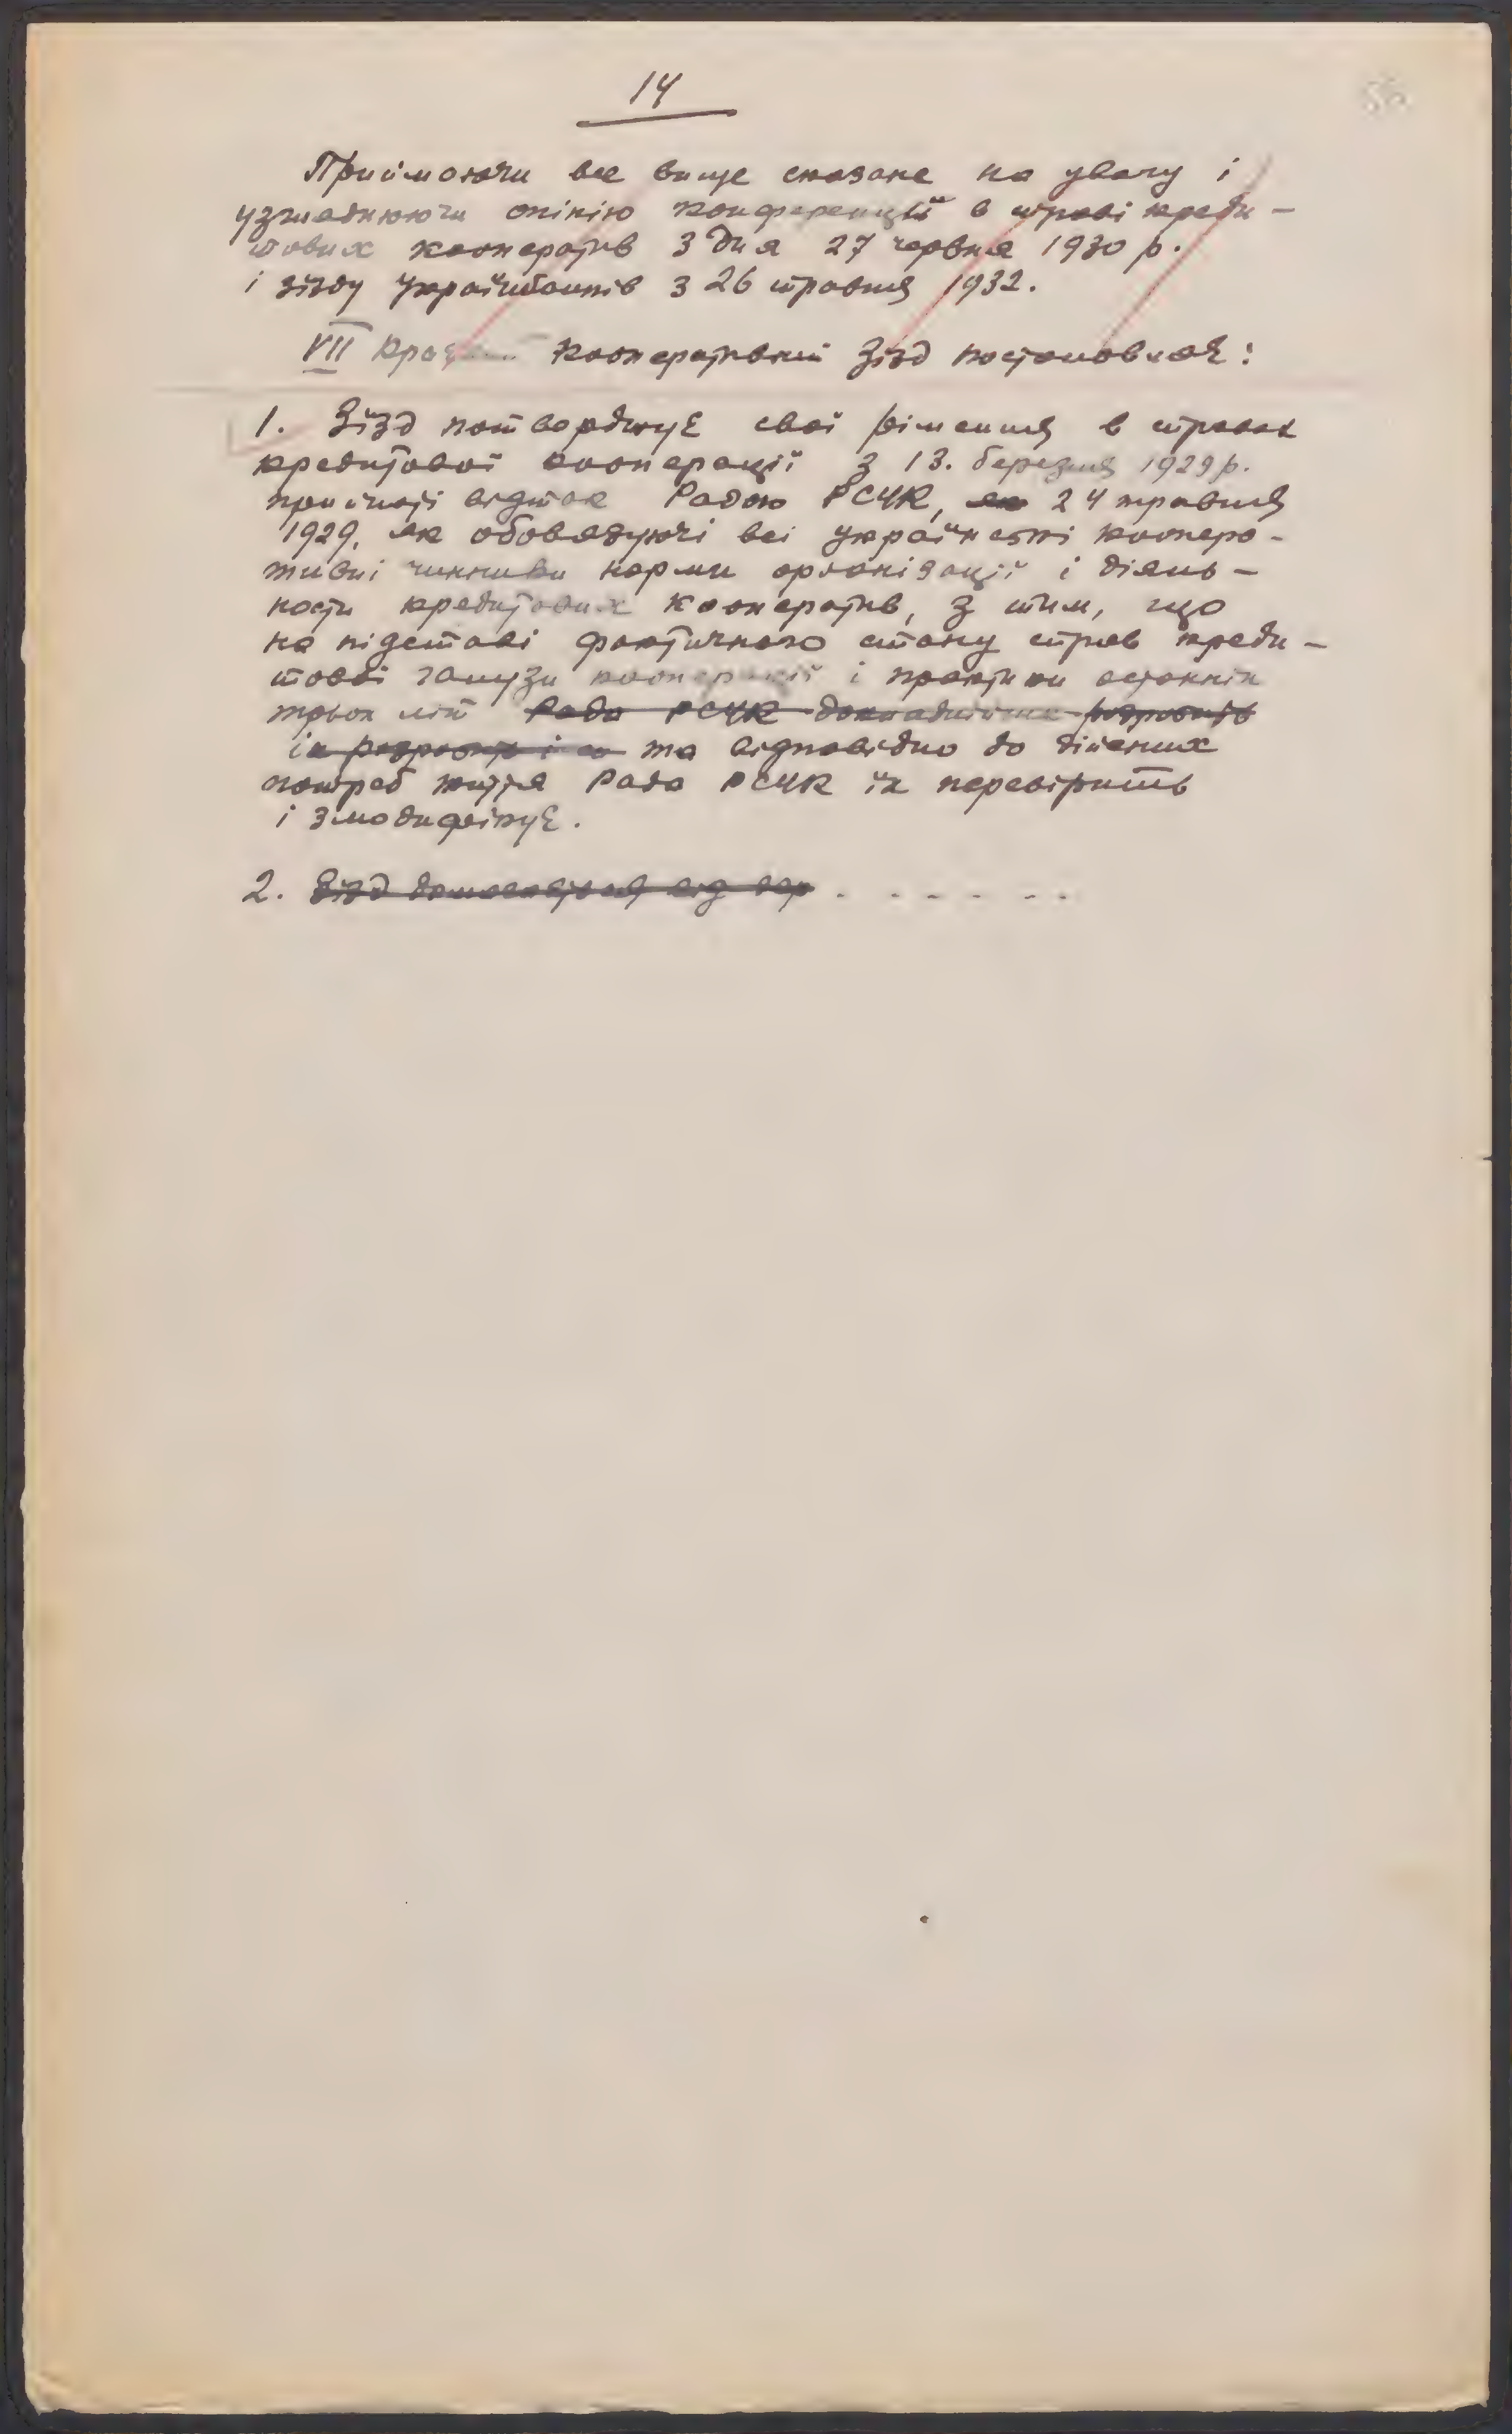 14
Приймаючи все вище сказане на увагу і
узгляднюючи опінію конференції в справі креди-
тових кооператив з дня 27 червня 1930 р.
і зїзду Українбанків з 26 травня 1932.
VII Краєвий Кооперативний Зїзд постановляє:
1. Зїзд потверджує свої рішення в справах
кредитової кооперації з 13. березня 1929 р.
прийняті відтак Радою РСУК, як 24 травня
1929, як обовязуючі всі українські коопера-
тивні чинники норми організації і діяль-
ности кредитових кооператив, з тим, що
на підставі фактичного стану справ креди-
тової галузи кооперації і практики останніх
трьох літ Рада РСУК докладнійше розробить
їх та відповідно до дійсних
потреб життя Рада РСУК їх перевірить
і змодифікує.
2. Зїзд домагається від . . . . . .